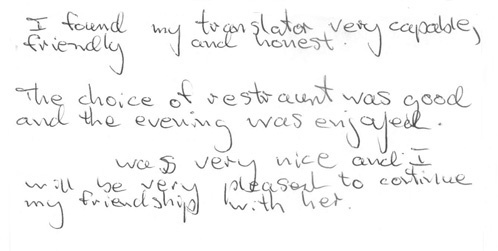 I found my translator very capable,
friendly and honest.
The choice of restraunt was good
and the evening was enjoyed.
was very nice and I
will be very pleased to continue
my friendship with her.